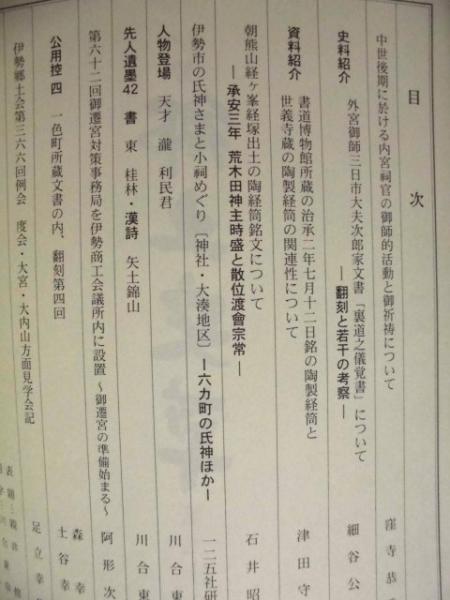 目次
中世後期に於ける内宮祠官の御師的活動と御祈祷について
窪寺恭
史料紹介 外宮御師三日市大夫次郎家文書「裏道之儀覚書」について
―翻刻と若干の考察―
細谷公
資料紹介 書道博物館所蔵の治承二年七月十二日銘の陶製経筒と
世義寺蔵の陶製経筒の関連性について
津田守
朝熊山経ヶ峯経塚出土の陶経筒銘文について
―承安三年 荒木田神主時盛と散位渡會宗常―
石井昭
伊勢市の氏神さまと小祠めぐり〔神社・大湊地区〕―六カ町の氏神ほか―
一二五社研
人物登場 天才 瀧 利民君
川合東
先人遺墨42 書 東 桂林・漢詩 矢土錦山
川合東
第六十二回御遷宮対策事務局を伊勢商工会議所内に設置 ～御遷宮の準備始まる～
阿形次
公用控 四 一色町所蔵文書の内、翻刻第四回
森幸
土谷幸
伊勢郷土会第三六六回例会 度会・大宮・大内山方面見学会記
足立幸